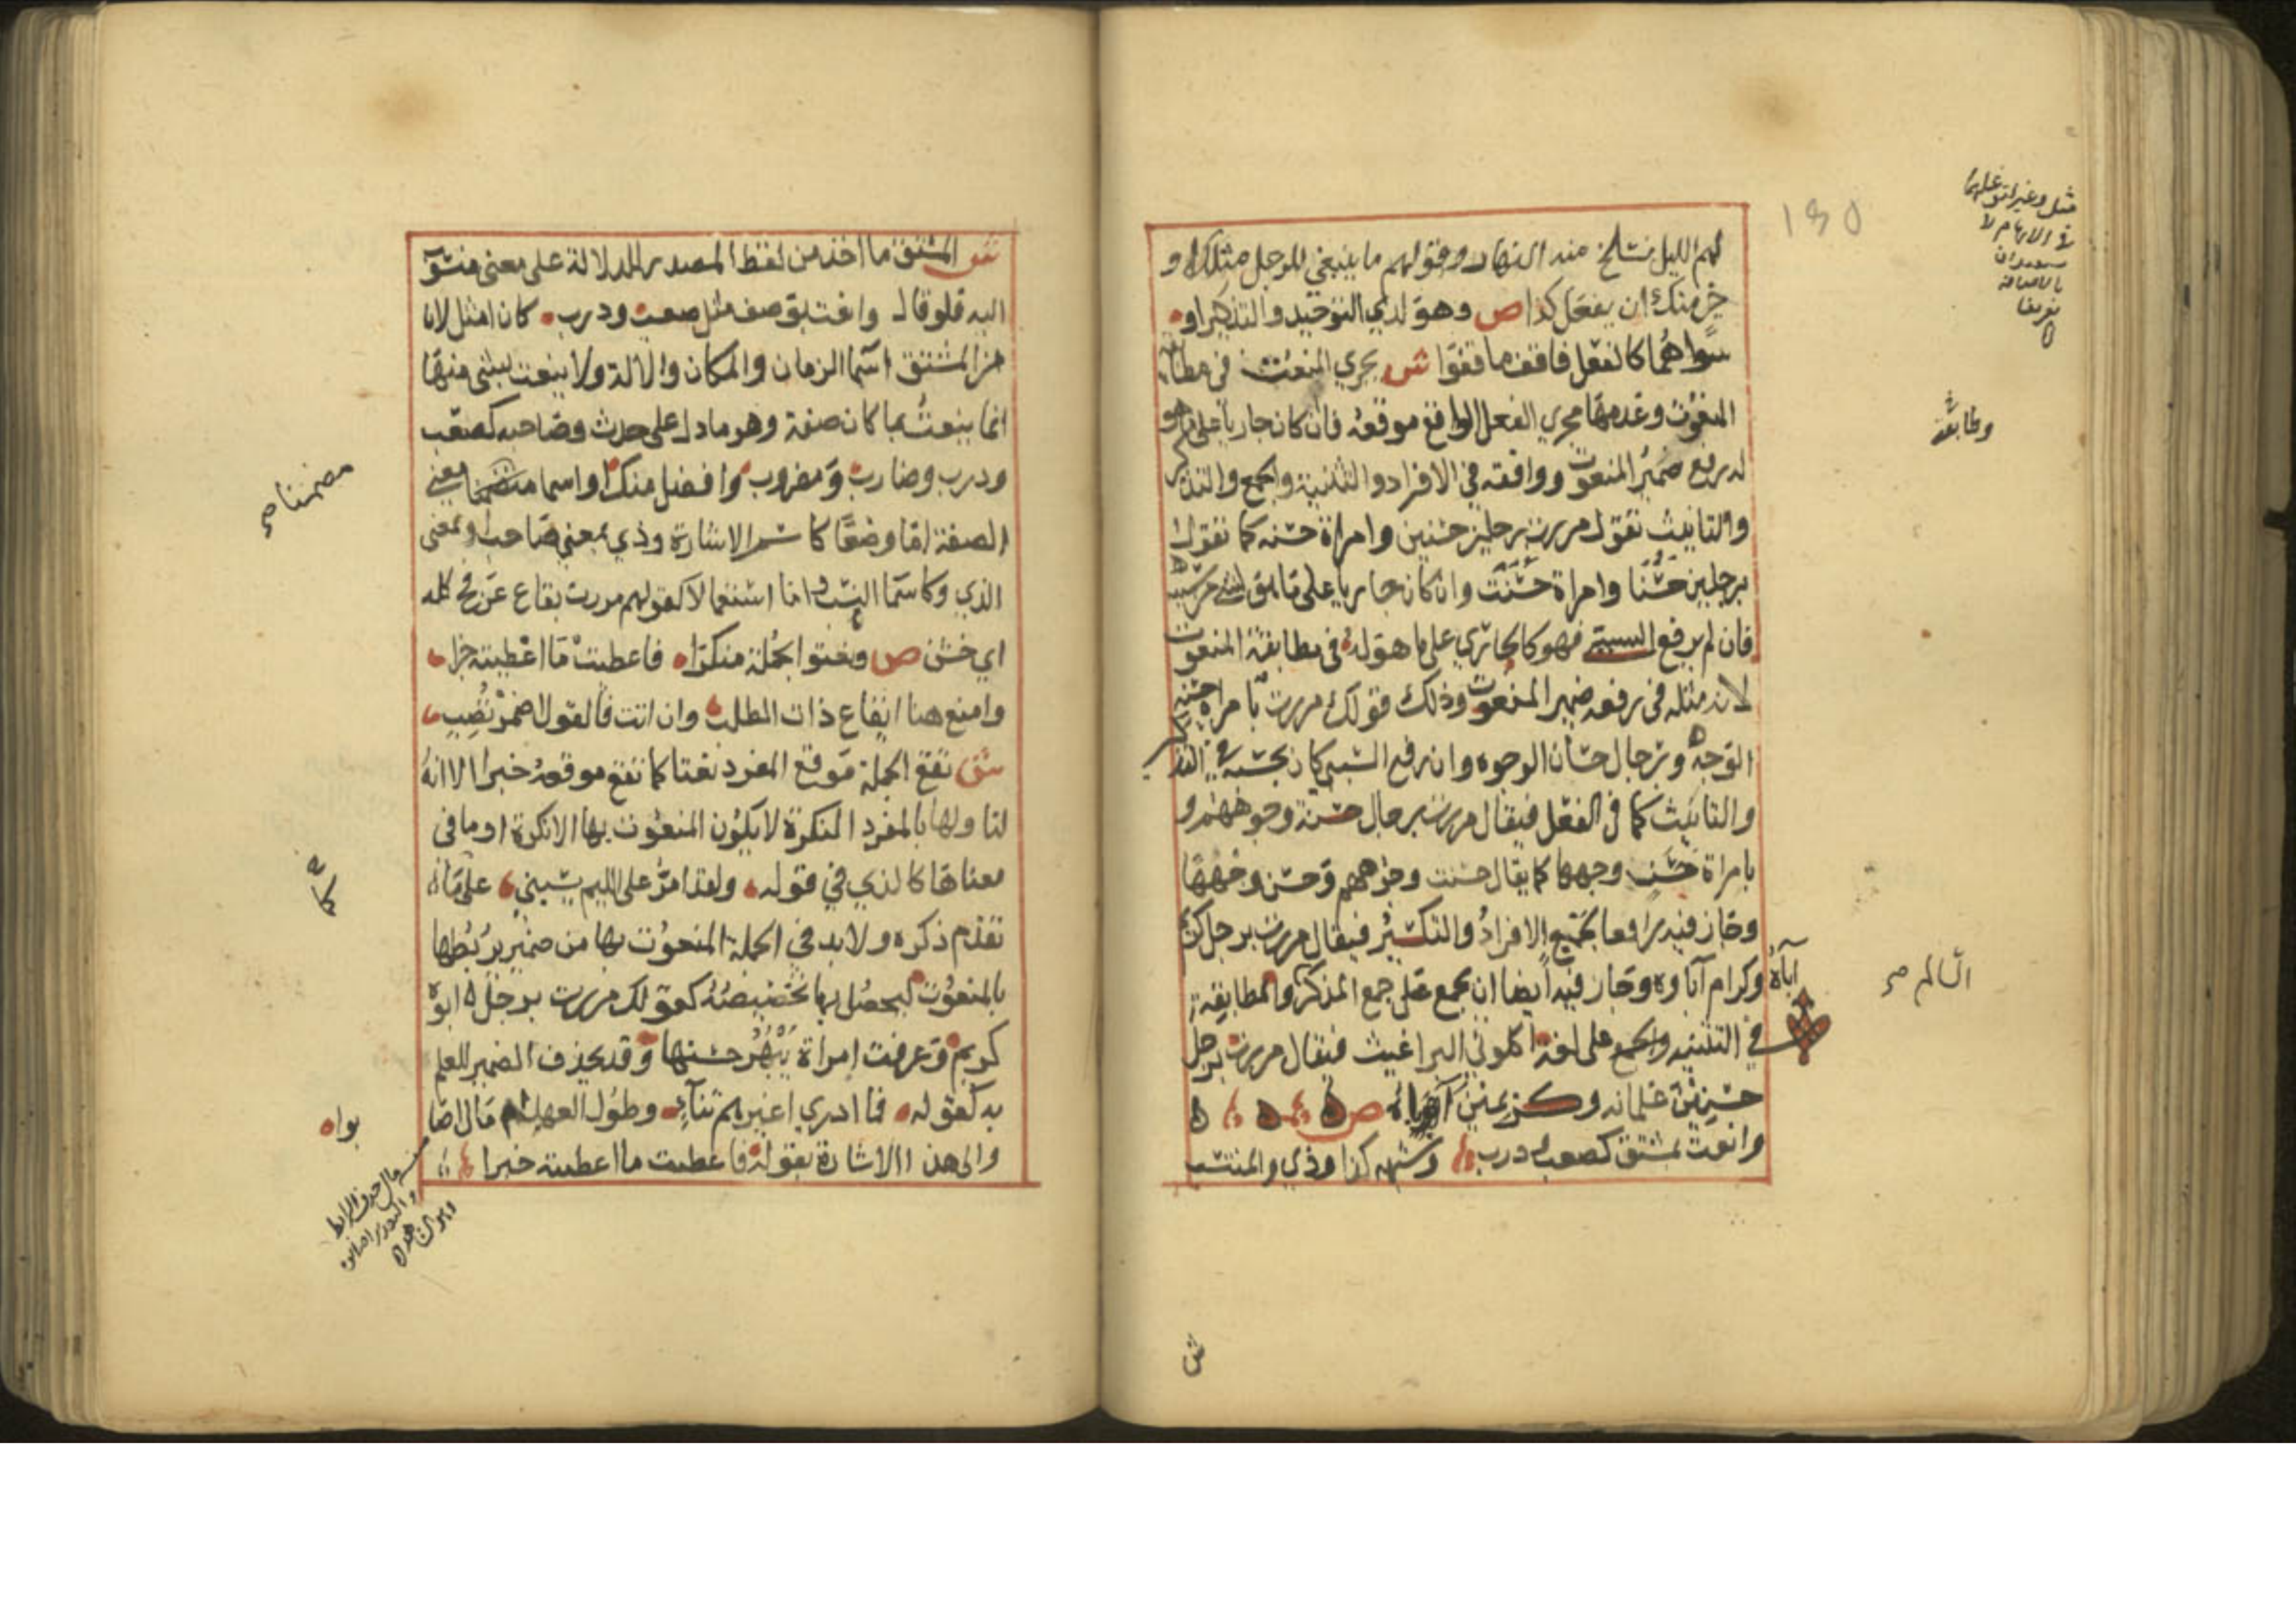 لهم الليل نسلخ منه النهار وقولهم ما ينبغي للرجل مثلك او
خير منك ان يفعل كذا ص وهو لدي التوحيد والتذكير او
سواهما كالفعل فاقف ما قفوا ش يجري النعت في مطابقة
المنعوت وعدمها مجري الفعل الواقع موقعه فان كان جاريا على ما هو
له رفع ضمير المنعوت ووافقه في الافراد والتثنية والجمع والتذكير
والتانيث تقول مررت برجلين حسنين وامراة حسنه كما تقول
برجلين حسنا وامراة حسنت وان كان جاريا على ما هو لشي من سببه
فان لم يرفع السببي فهو كالجاري على ما هو له في مطابقة المنعوت
لانه مثله في رفعه ضمير المنعوت وذلك قولك مررت بامراة حسنه
الوجه وبرجال حسان الوجوه وان رفع السببي كان بحسبه في التذكير
والتانيث كما في الفعل فيقال مررت برجال حسنة وجوههم و
بامراة حسن وجهها كما يقال حسنت وجوههم وحسن وجهها
وجاز فيه رافعا لجمع الافراد والتكسير فيقال مررت برجل كريم
اباه وكرام آباوه وجاز فيه ايضا ان يجمع على جمع المذكر والمطابقة
في التثنيه والجمع على لغة اكلوني البراغيث فيقال مررت برجل
حسنين غلمانه وكريمين آباوه ص
وانعت بمشتق كصعب ودرب وشبهه كذا وذي والمنتسب
ش
130
مثل وغير لتوغلهما
في الابهام لا
بالاضافة
تعريفا
ومطابقته
السالم صح
ش المشتق ما اخذ من لفظ المصدر للدلالة على معنى منسوب
اليه فلو قال وانعت بوصف مثل صعب ودرب كان امثل لان
من المشتق اسما الزمان والمكان والالة ولا ينعت بشي منها
انما ينعت بما كان صفة وهو ما دل على حدث وصاحبه كصعب
ودرب وضارب ومضروب وافضل منك او اسما متضمنا معنى
الصفة اما وضعا كاسم الاشارة وذي بمعنى صاحب وبمعنى
الذي وكاسما النسب واما استعمالا كقولهم مررت بقاع عرفج كله
اي خشن ص ونعتوا بجملة منكرا فاعطيت ما اعطيته خبرا
وامنع هنا ايقاع ذات الطلب وان اتت فالقول اضمر تصب
ش تقع الجملة موقع المفرد نعتا كما تقع موقعه خبرا الا انه
لتاولها بالمفرد النكرة لا يكون المنعوت بها الا نكرة او ما في
معناها كالذي في قوله ولقد امر على اللئيم يسبني على ما
تقدم ذكره ولا بد في الجملة المنعوت بها من ضمير يربطها
بالمنعوت ليحصل بها تخصيصه كقولك مررت برجل ابوه
كريم وعرفت امراة يبهر حسنها وقد يحذف الضمير للعلم
به كقوله فما ادري اغيرهم تناء وطول العهد ام مال اصا
والى هذا الاشارة بقوله فاعطيت ما اعطيته خبرا
مضمنا صح
كما
بواه